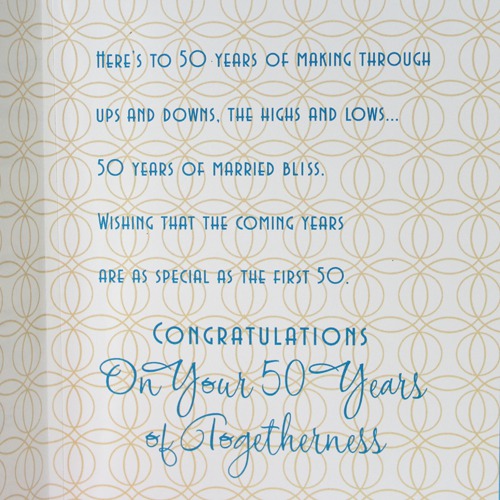 Here's to 50 years of making through
ups and downs, the highs and lows...
50 years of married bliss.
Wishing that the coming years
are as special as the first 50.
Congratulations
On Your 50 Years
of Togetherness